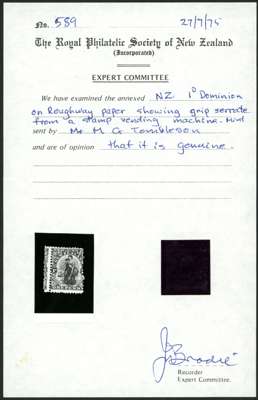 No. 589 27/7/75
The Royal Philatelic Society of New Zealand
(Incorporated)
EXPERT COMMITTEE
We have examined the annexed NZ 1d Dominion
on Roughway paper showing grip serrate
from a stamp vending machine. Mint
sent by Mr M G Tombleson
and are of opinion that it is genuine.
J Brodie
Recorder
Expert Committee.